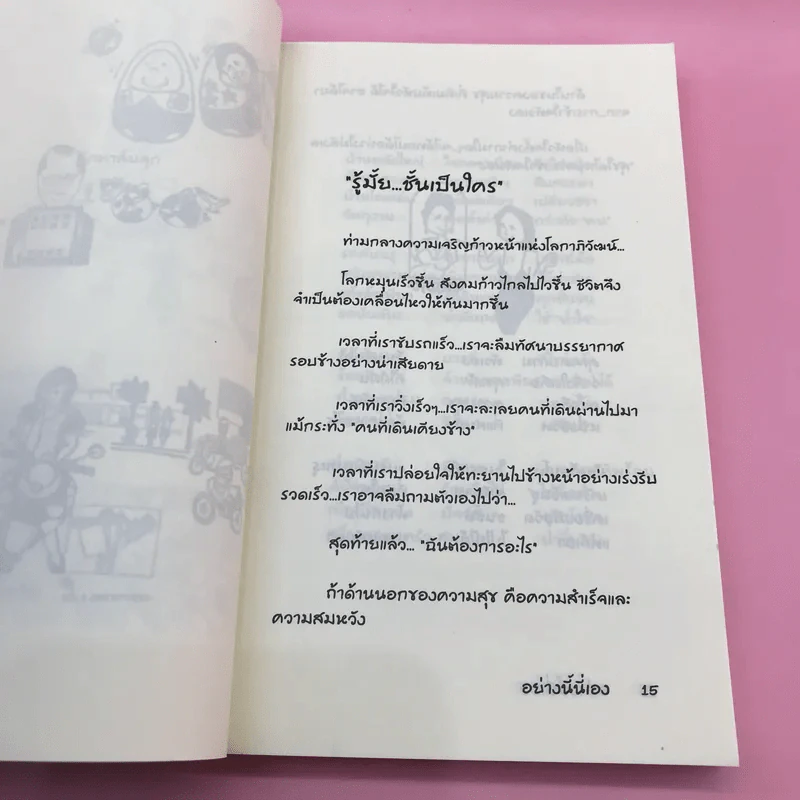 "รู้มั้ย...ชั้นเป็นใคร"
ท่ามกลางความเจริญก้าวหน้าแห่งโลกาภิวัฒน์...
โลกหมุนเร็วขึ้น สังคมก้าวไกลไปไวขึ้น ชีวิตจึง
จำเป็นต้องเคลื่อนไหวให้ทันมากขึ้น
เวลาที่เราขับรถเร็ว...เราจะลืมทัศนาบรรยากาศ
รอบข้างอย่างน่าเสียดาย
เวลาที่เราวิ่งเร็วๆ...เราจะละเลยคนที่เดินผ่านไปมา
แม้กระทั่ง "คนที่เดินเคียงข้าง"
เวลาที่เราปล่อยใจให้ทะยานไปข้างหน้าอย่างเร่งรีบ
รวดเร็ว...เราอาจลืมถามตัวเองไปว่า...
สุดท้ายแล้ว... "ฉันต้องการอะไร"
ถ้าด้านนอกของความสุข คือความสำเร็จและ
ความสมหวัง
อย่างนี้นี่เอง 15